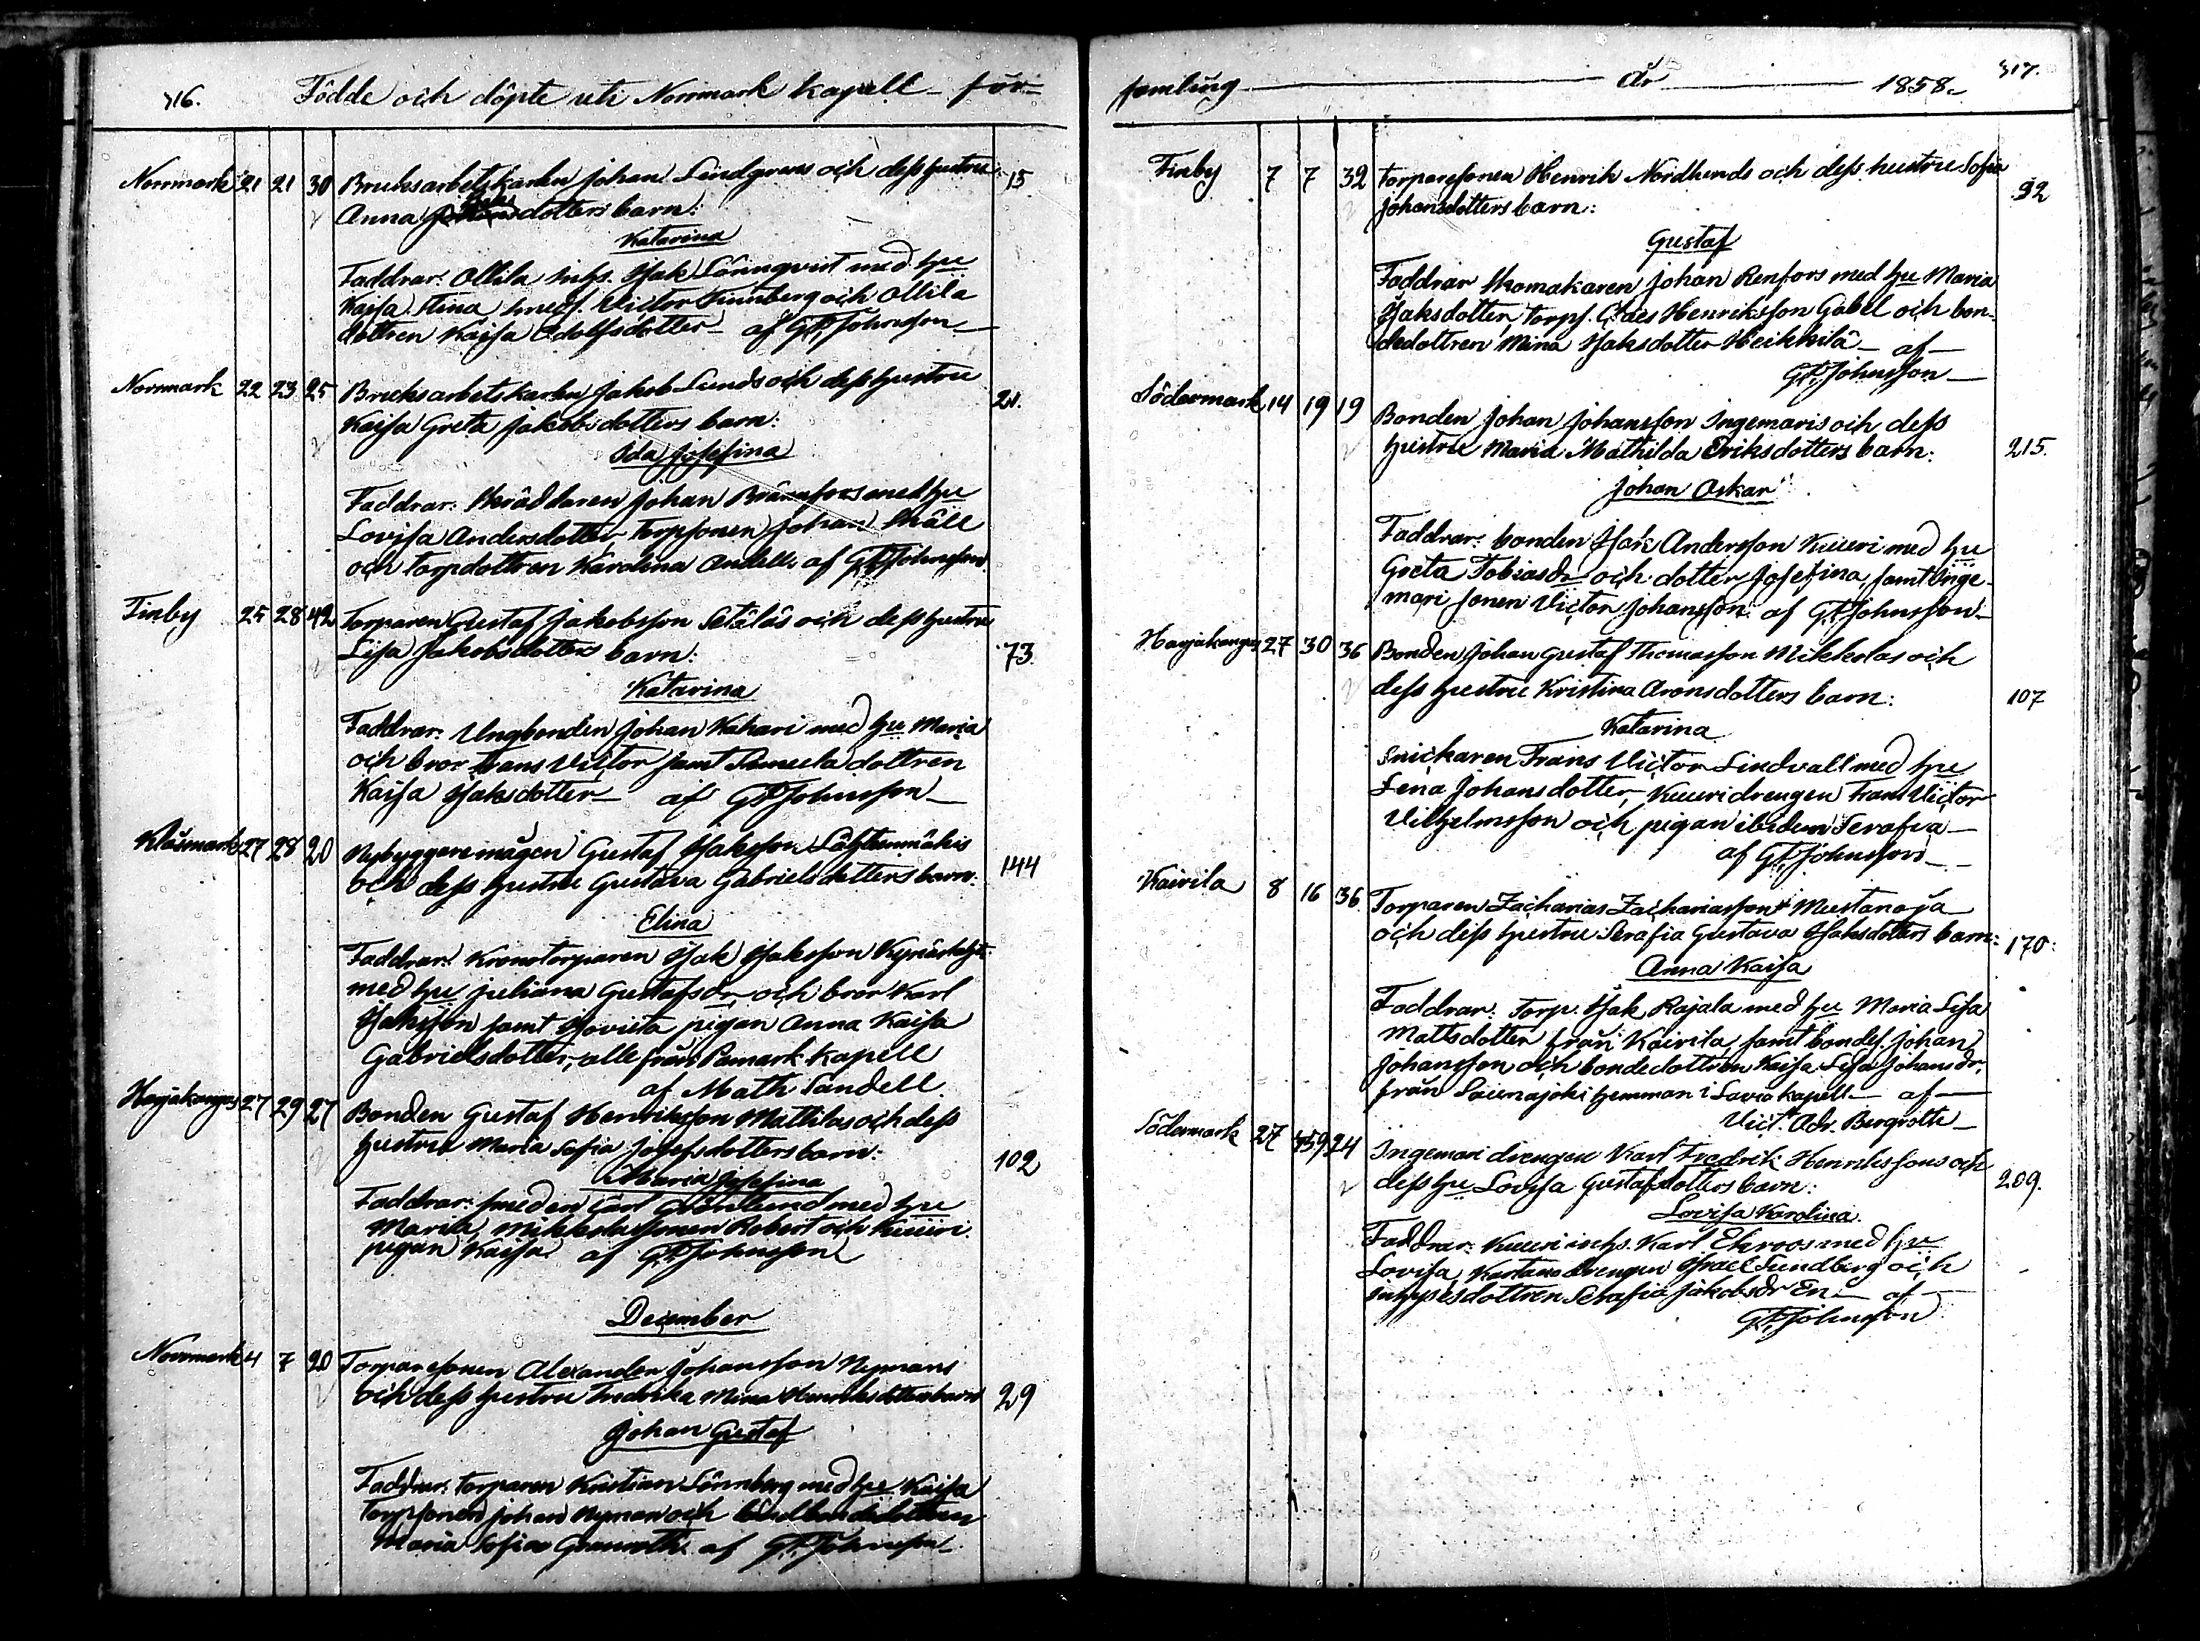 716. Födde och döpte uti Norrmark kapell för-
Norrmark 21 21 30 Bruksarbetskarlen Johan Lindgrens och dess hustru 15
Anna dotters barn:
Katarina
Faddrar: Ollila inhs. Isak Lönnqvist med hu
Kajsa Stina, smeds. Victor Finnberg och Ollila
dottren Kajsa Adolfsdotter – af G.F. Johnsson –
Norrmark 22 23 25 Bruksarbetskarlen Jakob Lunds och dess hustru 21.
Kaisa Greta Jakobsdotters barn:
Ida Josefina
Faddrar: Skräddaren Johan Brännfors med hu
Lovisa Andersdotter, torpsonen Johan Skäll
och torpdottren Karolina Andell. af G.F. Johnsson.
Finby 25 28 42 Torparen Gustaf Jakobsson Setäläs och dess hustru
Lisa Jakobsdotters barn: 73.
Katarina
Faddrar: Ungbonden Johan Kahari med hu Maria
och bror Frans Victor samt dottren
Kaisa Isaksdotter – af G.F. Johnsson –
Klåsmark 27 28 20 Nybyggaremågen Gustaf Isaksson Lähteenmäkis
och dess hustru Gustava Gabrielsdotters barn: 144
Elina
Faddrar: Kronotorparen Isak Isaksson
med hu Juliana Gustafsdr och bror Karl
Isaksson samt pigan Anna Kaisa
Gabrielsdotter, alle från Pamark kapell
af Math Tandell
Harjakangas 27 29 27 Bonden Gustaf Henriksson Mattilas och dess
hustru Maria Sofia Josefsdotters barn: 102
Maria Josefina
Faddrar: smeden Carl Grönlund med hu
Maria, Mikkolasonen Robert och Kuuri
pigan Kaisa af G.F. Johnsson
December
Norrmark 4 7 20 Torparesonen Alexander Johansson Nymans
och dess hustru Fredrika Mina Henriksdotters barn 29
Johan Gustaf
Faddrar: torparen Kristian Lönnberg med hu Kaisa
Torpsonen Johan Nyman och
Maria Sofia Granroth. af G.F. Johnsson –
samling år 1858. 717.
Finby 7 7 32 Torparesonen Henrik Nordlunds och dess hustru Sofia 92
Johansdotters barn:
Gustaf
Faddrar Skomakaren Johan Renfors med hu Maria
Isaksdotter, torps. Henriksson Gabel och bon-
dedottren Mina Isaksdotter Heikkilä – af –
G.F. Johnsson –
Södermark 14 19 19 Bonden Johan Johansson Ingemaris och dess
hustru Maria Mathilda Eriksdotters barn: 215.
Johan Oskar
Faddrar: bonden Isak Andersson Kuuri med hu
Greta Tobiasdr och dotter Josefina, samt Inge-
mari sonen Victor Johansson. af G.F. Johnsson –
Harjakangas 27 30 36 Bonden Johan Gustaf Thomasson Mikkolas och
dess hustru Kristina Aronsdotters barn: 107
Katarina
Snickaren Frans Victor Lindvall med hu
Lena Johansdotter, Kuuridrengen Frans Victor
Vilhelmsson och pigan ibidem Serafia –
af G.F. Johnsson –
Kairila 8 16 36 Torparen Zacharias Zachariasson Mustanoja
och dess hustru Serafia Gustava Isaksdotters barn: 170.
Anna Kaisa
Faddrar: Torp. Isak Rajala med hu Maria Lisa
Mattsdotter från Kairila, samt bondes. Johan
Johansson och bondedottren Kaisa Lisa Johansdr,
från hemman i Lavia kapell – af –
Vict. Adr. Bergroth –
Södermark 27 24 Ingemari drengen Karl Fredrik Henrikssons och
dess hu Lovisa Gustafsdotters barn: 209.
Lovisa Karolina.
Faddrar: Kuuri inhs. Karl Ekroos med hu
Lovisa, drengen Israel Sundberg och
inhysesdottren Serafia Jakobsdr En – af –
G.F. Johnsson